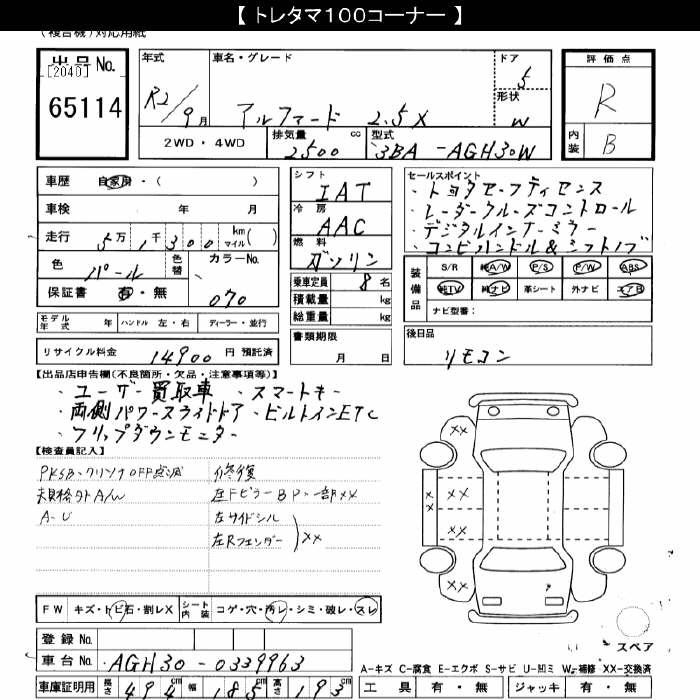 【 トレタマ100コーナー 】
(複合機)対応用紙
出品No.
[2040]
65114
年式
R2/9月
車名・グレード
アルファード 2.5X
ドア
5
形状
W
評価点
R
内装
B
2WD・4WD
排気量
2500 cc
型式
3BA-AGH30W
車歴 自家用・( )
車検 年 月
走行 5万1千300 km マイル( )
色 パール 色替
カラーNo. 070
保証書 有・無
モデル年式 年 ハンドル 左・右 ディーラー・並行
リサイクル料金 14900 円 預託済
シフト
IAT
冷房
AAC
燃料
ガソリン
乗車定員 8 名
積載量 kg
総重量 kg
書類期限
月 日
セールスポイント
・トヨタセーフティセンス
・レーダークルーズコントロール
・デジタルインナーミラー
・コンビハンドル&シフトノブ
装備品
S/R 純A/W P/S P/W ABS
純TV 純ナビ 革シート 外ナビ エアB
ナビ型番:
後日品
リモコン
【出品店申告欄(不良箇所・欠品・注意事項等)】
・ユーザー買取車 ・スマートキー
・両側パワースライドドア ・ビルトインETC
・フリップダウンモニター
【検査員記入】
PKSB・クリソナOFF点滅
規格外A/W
A-U
修復
左FピラーBP・一部XX
左サイドシル
左Rフェンダー
XX
XX
XX
XX
XX
XX
FW キズ・トビ石・割レX シート内装 コゲ・穴・汚レ・シミ・破レ・スレ
スペア
登録No.
車台No. AGH30-0339963
A-キズ C-腐食 E-エクボ S-サビ U-凹ミ W-補修 XX-交換済
車庫証明用 長さ 494 cm 幅 185 cm 高さ 193
工具 有・無 ジャッキ 有・無